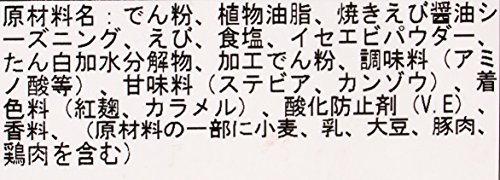 原材料名：でん粉、植物油脂、焼きえび醬油シ
ーズニング、えび、食塩、イセエビパウダー、
たん白加水分解物、加工でん粉、調味料（アミ
ノ酸等）、甘味料（ステビア、カンゾウ）、着
色料（紅麹、カラメル）、酸化防止剤（V.E）、
香料、（原材料の一部に小麦、乳、大豆、豚肉、
鶏肉を含む）